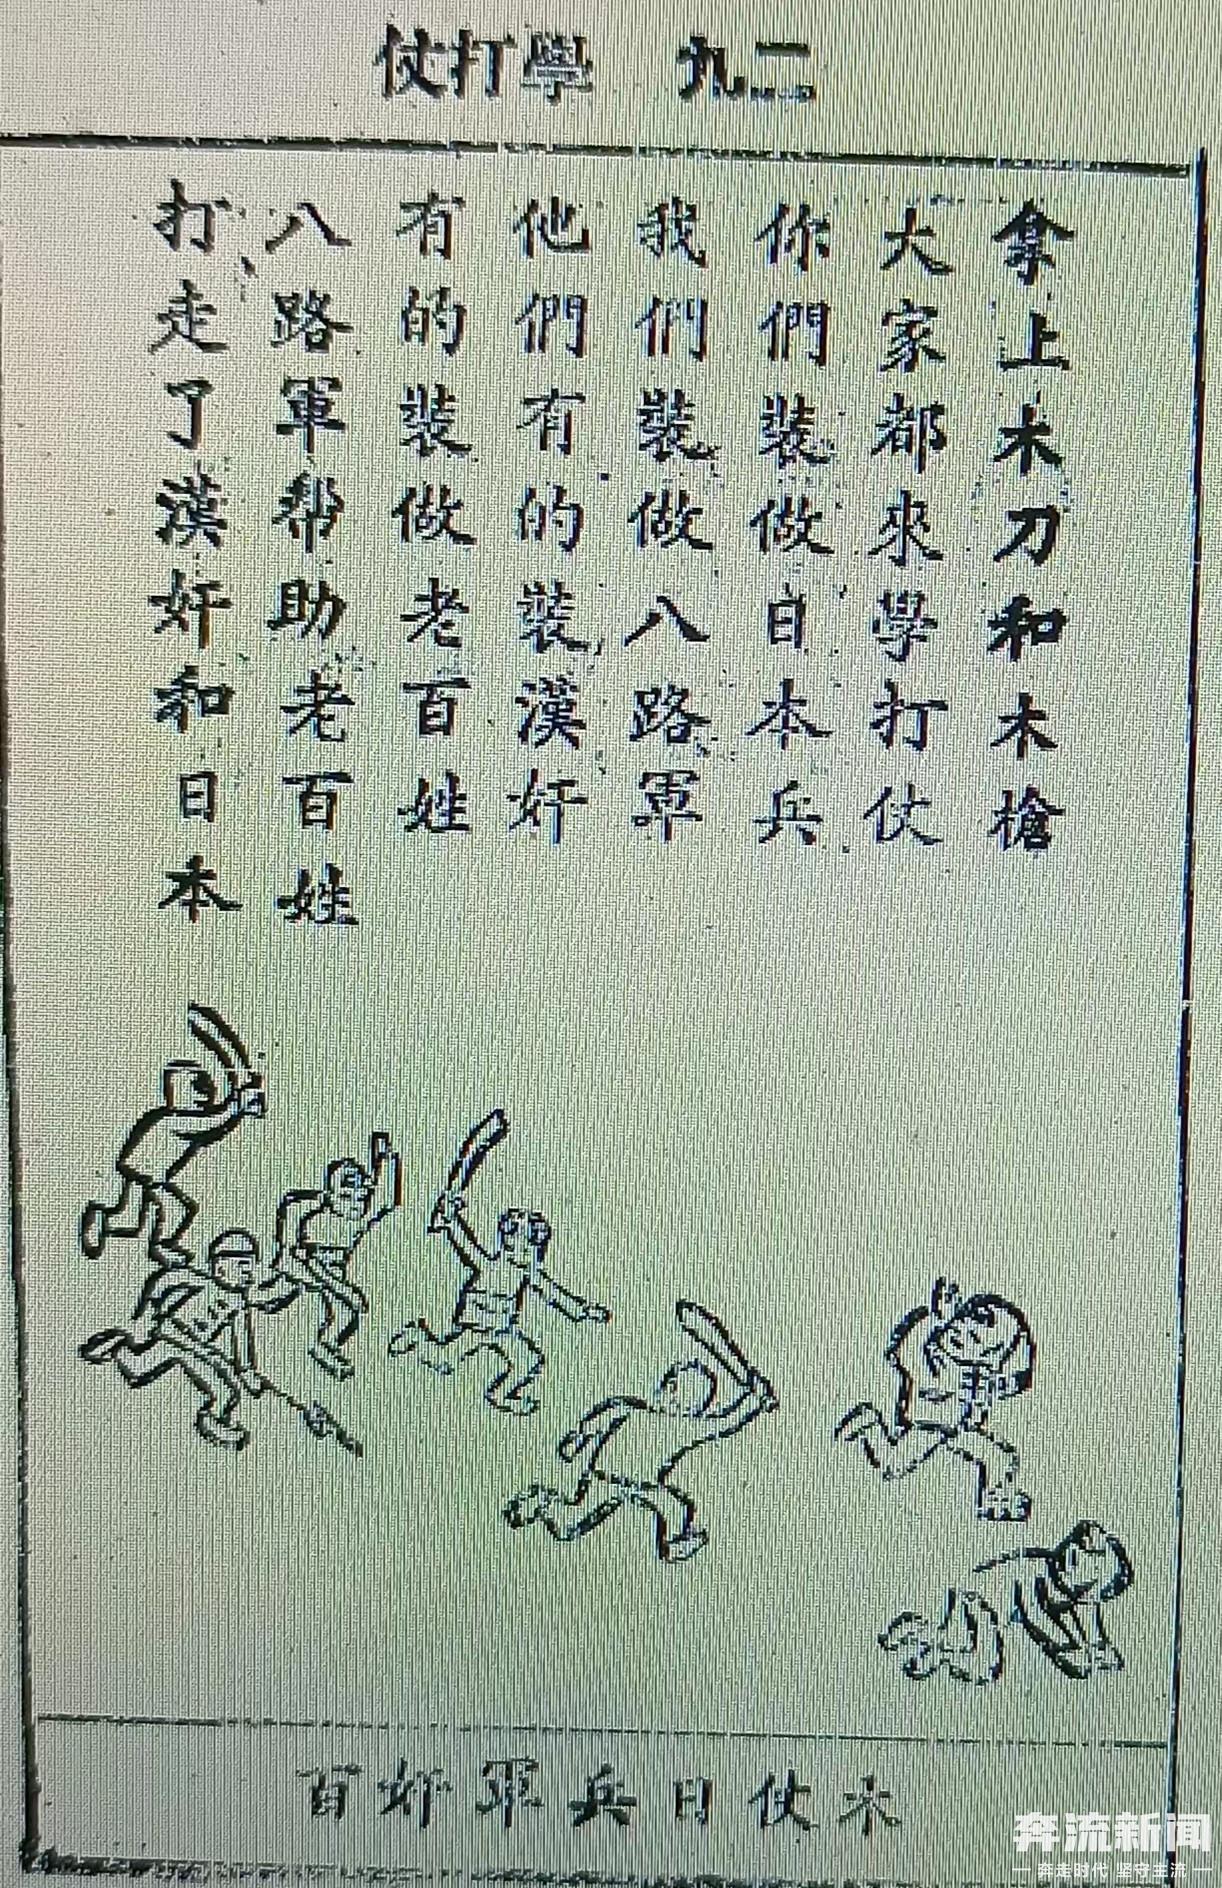 二九 學打仗
拿上木刀和木槍
大家都來學打仗
你們裝做日本兵
我們裝做八路軍
他們有的裝漢奸
有的裝做老百姓
八路軍帮助老百姓
打走了漢奸和日本
木仗日兵軍奸百
奔流新闻
奔走时代 坚守主流